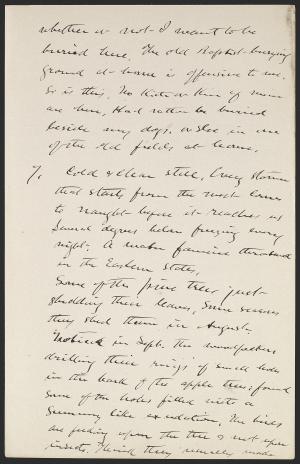 whether or not I want to be
buried here. The old Baptist burying
ground at home is offensive to me.
So is this. No kith or kin of mine
are here. Had rather be buried
beside my dogs, or else in one
of the old fields at home.
7, Cold & clear still, Every storm
that starts from the west comes
to naught before it reaches us
Several degrees below freezing every
night. A water famine threatened
in the Eastern States.
Some of the pine trees just
shedding their leaves, Some seasons
they shed them in August.
Noticed in Sept. the woodpeckers
drilling their rings of small holes
in the bark of the apple trees; found
some of the holes filled with a
gummy like exudation. The birds
are feeding upon the tree & not upon
insects. I think they merely made